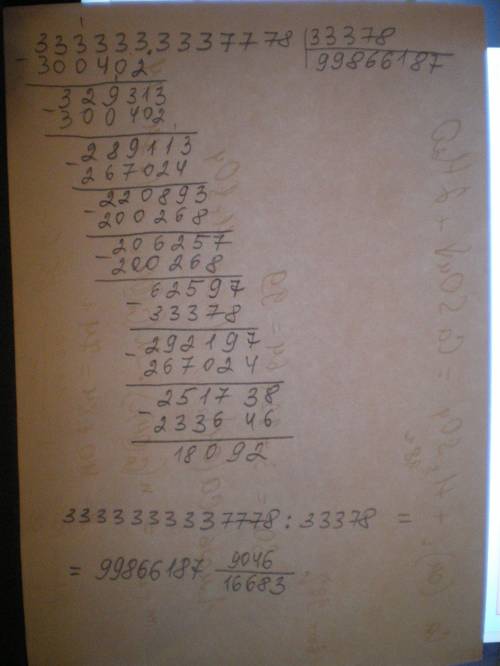 3333333337778 33378
- 300402 99866187
329313
- 300402
289113
- 267024
220893
- 200268
206257
- 200268
62597
- 33378
292197
- 267024
251738
- 233646
18092
3333333337778 : 33378 =
= 99866187 9046
16683